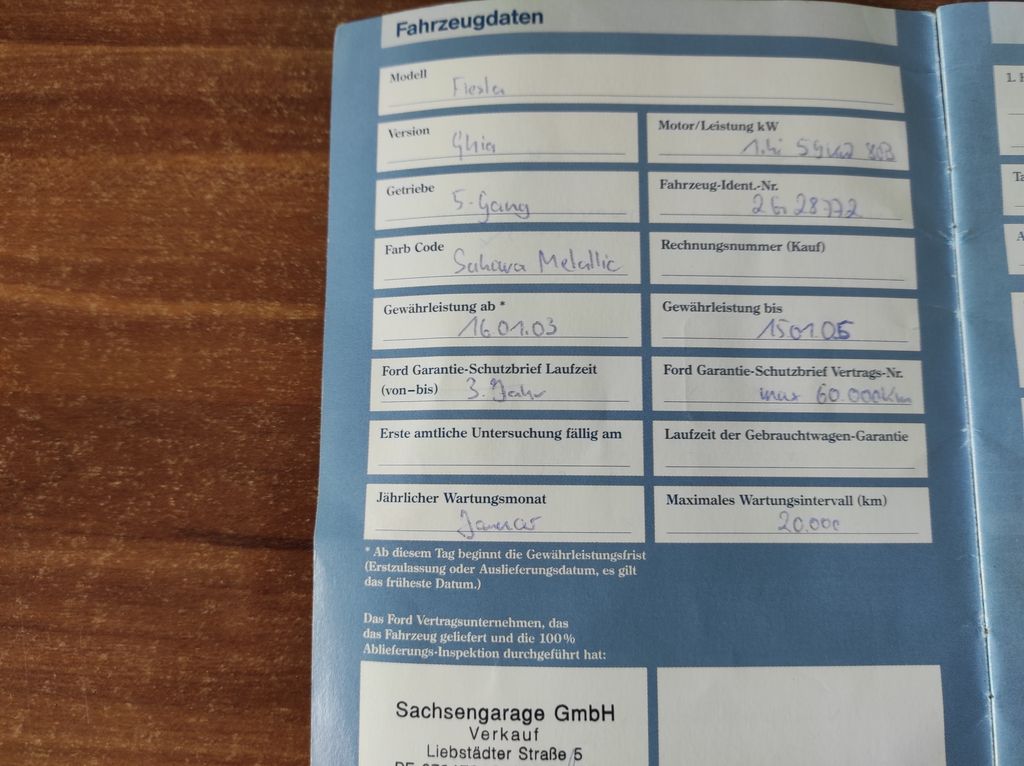 Fahrzeugdaten
Modell Fiesta
Version Ghia
Motor/Leistung kW 1.4i 59kW
Getriebe 5-Gang
Fahrzeug-Ident.-Nr.
Farb Code Sahara Metallic
Rechnungsnummer (Kauf)
Gewährleistung ab * 16.01.03
Gewährleistung bis 15 01.05
Ford Garantie-Schutzbrief Laufzeit
(von–bis) 3. Jahr
Ford Garantie-Schutzbrief Vertrags-Nr.
max 60.000Km
Erste amtliche Untersuchung fällig am
Laufzeit der Gebrauchtwagen-Garantie
Jährlicher Wartungsmonat
Januar
Maximales Wartungsintervall (km)
20.000
* Ab diesem Tag beginnt die Gewährleistungsfrist
(Erstzulassung oder Auslieferungsdatum, es gilt
das früheste Datum.)
Das Ford Vertragsunternehmen, das
das Fahrzeug geliefert und die 100%
Ablieferungs-Inspektion durchgeführt hat:
Sachsengarage GmbH
Verkauf
Liebstädter Straße 5